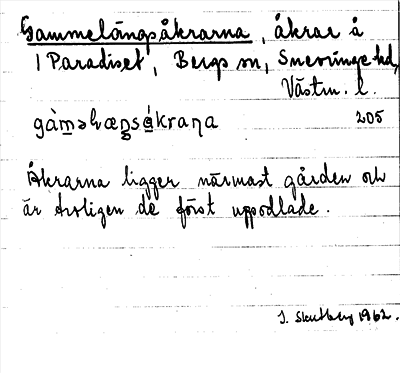 Gammelängsåkrarna, åkrar å
1 Paradiset, Bergs sn, Snevringe hd,
Västm. l.
205
Åkrarna ligger närmast gården och
är troligen de först uppodlade.
1962.